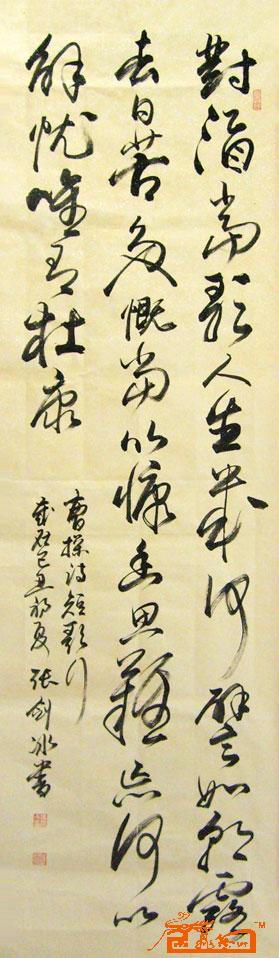 對酒當歌人生幾何譬如朝露
去日苦多慨當以慷幽思難忘何以
解忧唯有杜康
曹操诗短歌行
歲在己丑初夏張劍冰書